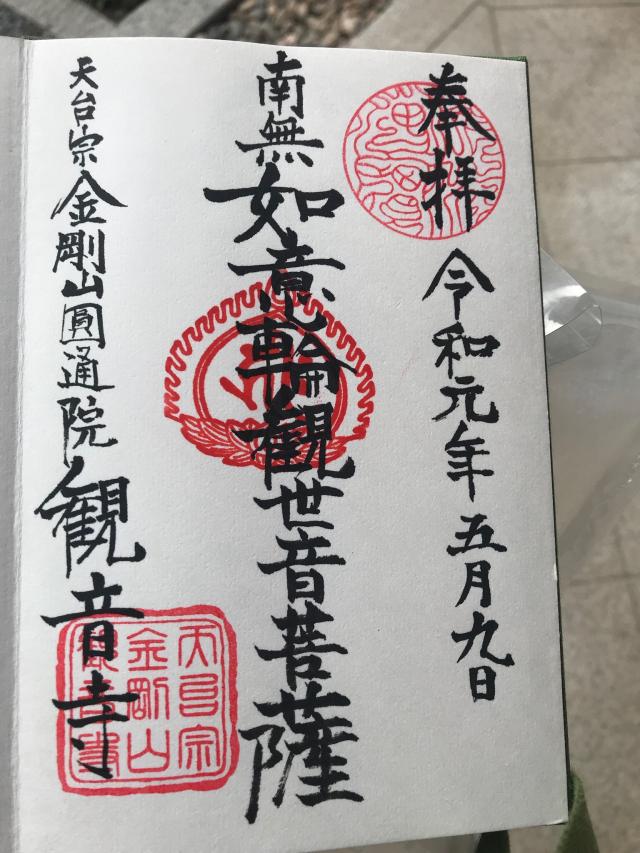 奉拝 令和元年五月九日
南無如意輪観世音菩薩
天台宗金剛山圓通院観音寺
天台宗
金剛山
観音寺